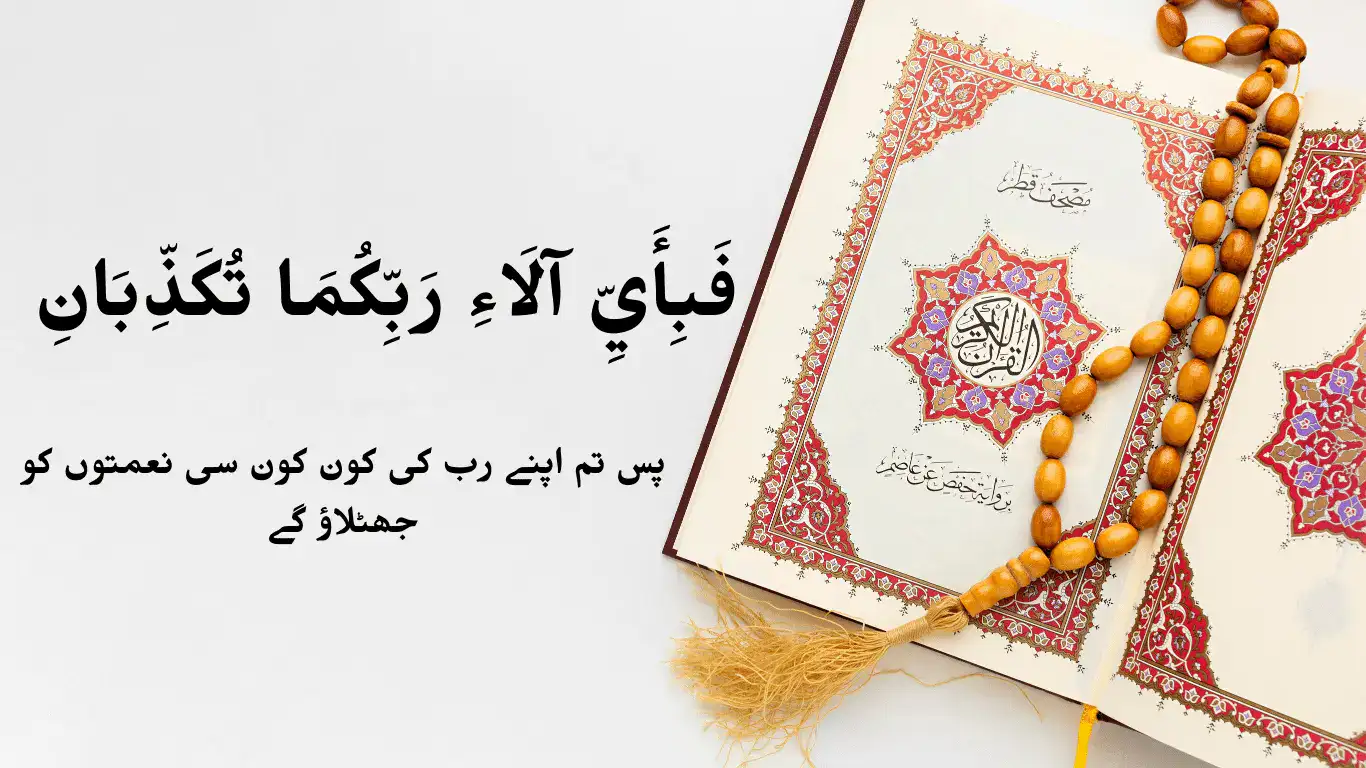 فَبِأَيِّ آلَاءِ رَبِّكُمَا تُكَذِّبَانِ
پس تم اپنے رب کی کون کون سی نعمتوں کو
جھٹلاؤ گے
مصحف قطر
القرآن الكريم
برواية حفص عن عاصم